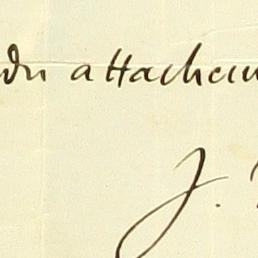 du attachem
J.